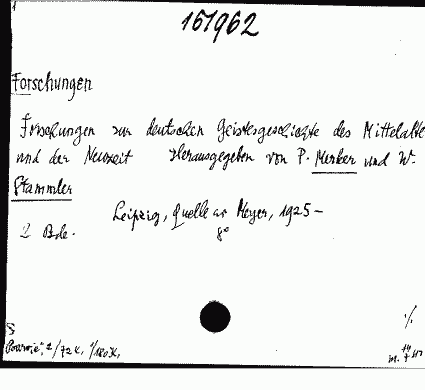 151962
Forschungen
Forschungen zur deutschen Geistesgeschichte des Mittelalte
und der Neuzeit Herausgegeben von P. Merker und W.
Stammler
Leipzig, Quelle u. Meyer, 1925 –
2 Bde. 8°